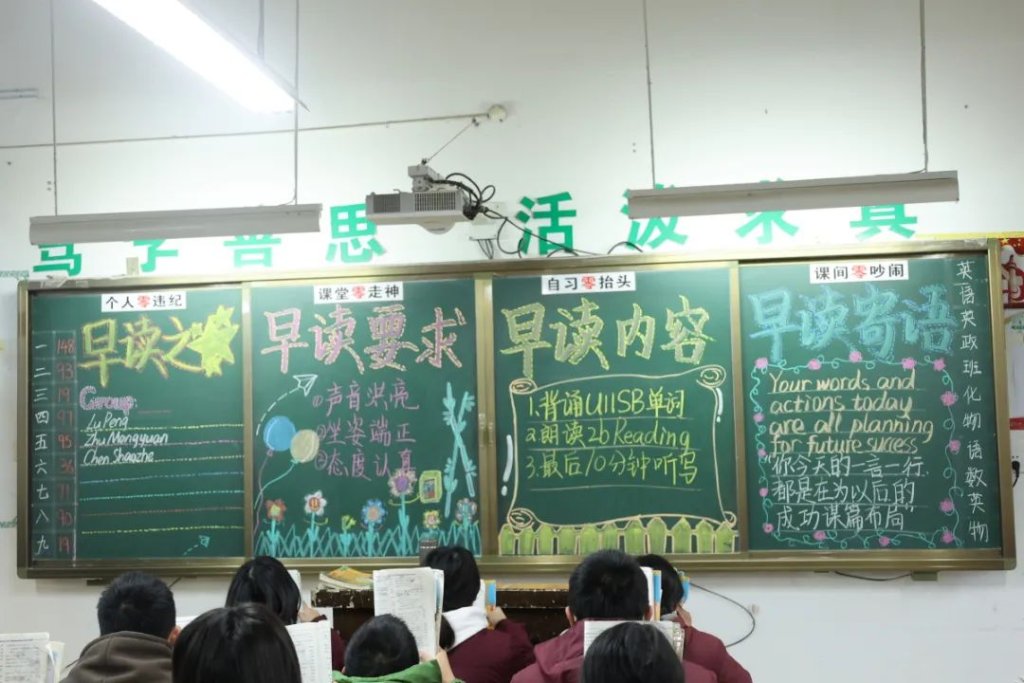 思 活泼求真
个人零违纪
早读之
一 148
二 93
三 19
四 97
五 95
六 36
七 11
八 30
九 19
Group:
Lu Peng
Zhu Mengyuan
Chen Shaozhe
课堂零走神
早读要求
①声音洪亮
②坐姿端正
③态度认真
自习零抬头
早读内容
1.背诵U11SB单词
2.朗读2b Reading
3.最后10分钟听写
课间零吵闹
早读寄语
Your words and
actions today
are all planning
for future sucess
你今天的一言一行,
都是在为以后的
成功谋篇布局
英
语
英
政
班
化
物
语
数
英
物